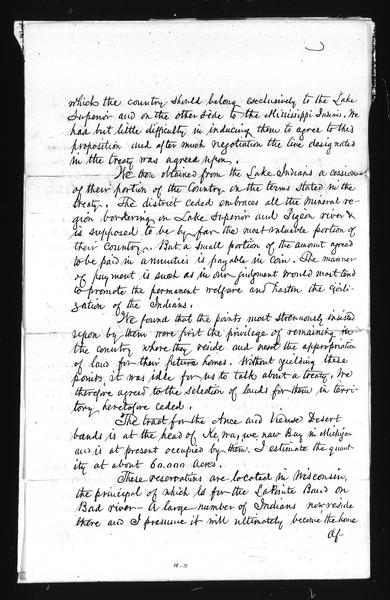 which the country should belong exclusively to the Lake
Superior and on the other side to the Mississippi Indians. We
had but little difficulty in inducing them to agree to this
proposition and after much negotiation the line designated
in the treaty was agreed upon.
We then obtained from the Lake Indians a cession
of their portion of the Country on the terms stated in the
treaty. The district ceded embraces all the mineral re
gion bordering on Lake Superior and Pigeon river &
is supposed to be by far the most valuable portion of
their country. But a small portion of the amount agreed
to be paid in annuities is payable in coin. The manner
of payment is such as in our judgment would most tend
to promote the permanent welfare and hasten the civili-
zation of the Indians.
We found that the points most strenuously insisted
upon by them were first the privilege of remaining in
the country where they reside and next the appropriation
of land for their future homes. Without yielding these
points, it was idle for us to talk about a treaty. We
therefore agreed to the selection of lands for them in terri-
tory heretofore ceded.
The tract for the Ance and Vieux Desert
bands is at the head of Ke, wa, we naw Bay in Michigan
and is at present occupied by them. I estimate the quant
ity at about 60.000 acres.
These reservations are located in Wisconsin,
the principal of which is for the LaPointe Band on
Bad river - A large number of Indians now reside
there and I presume it will ultimately become the home
of